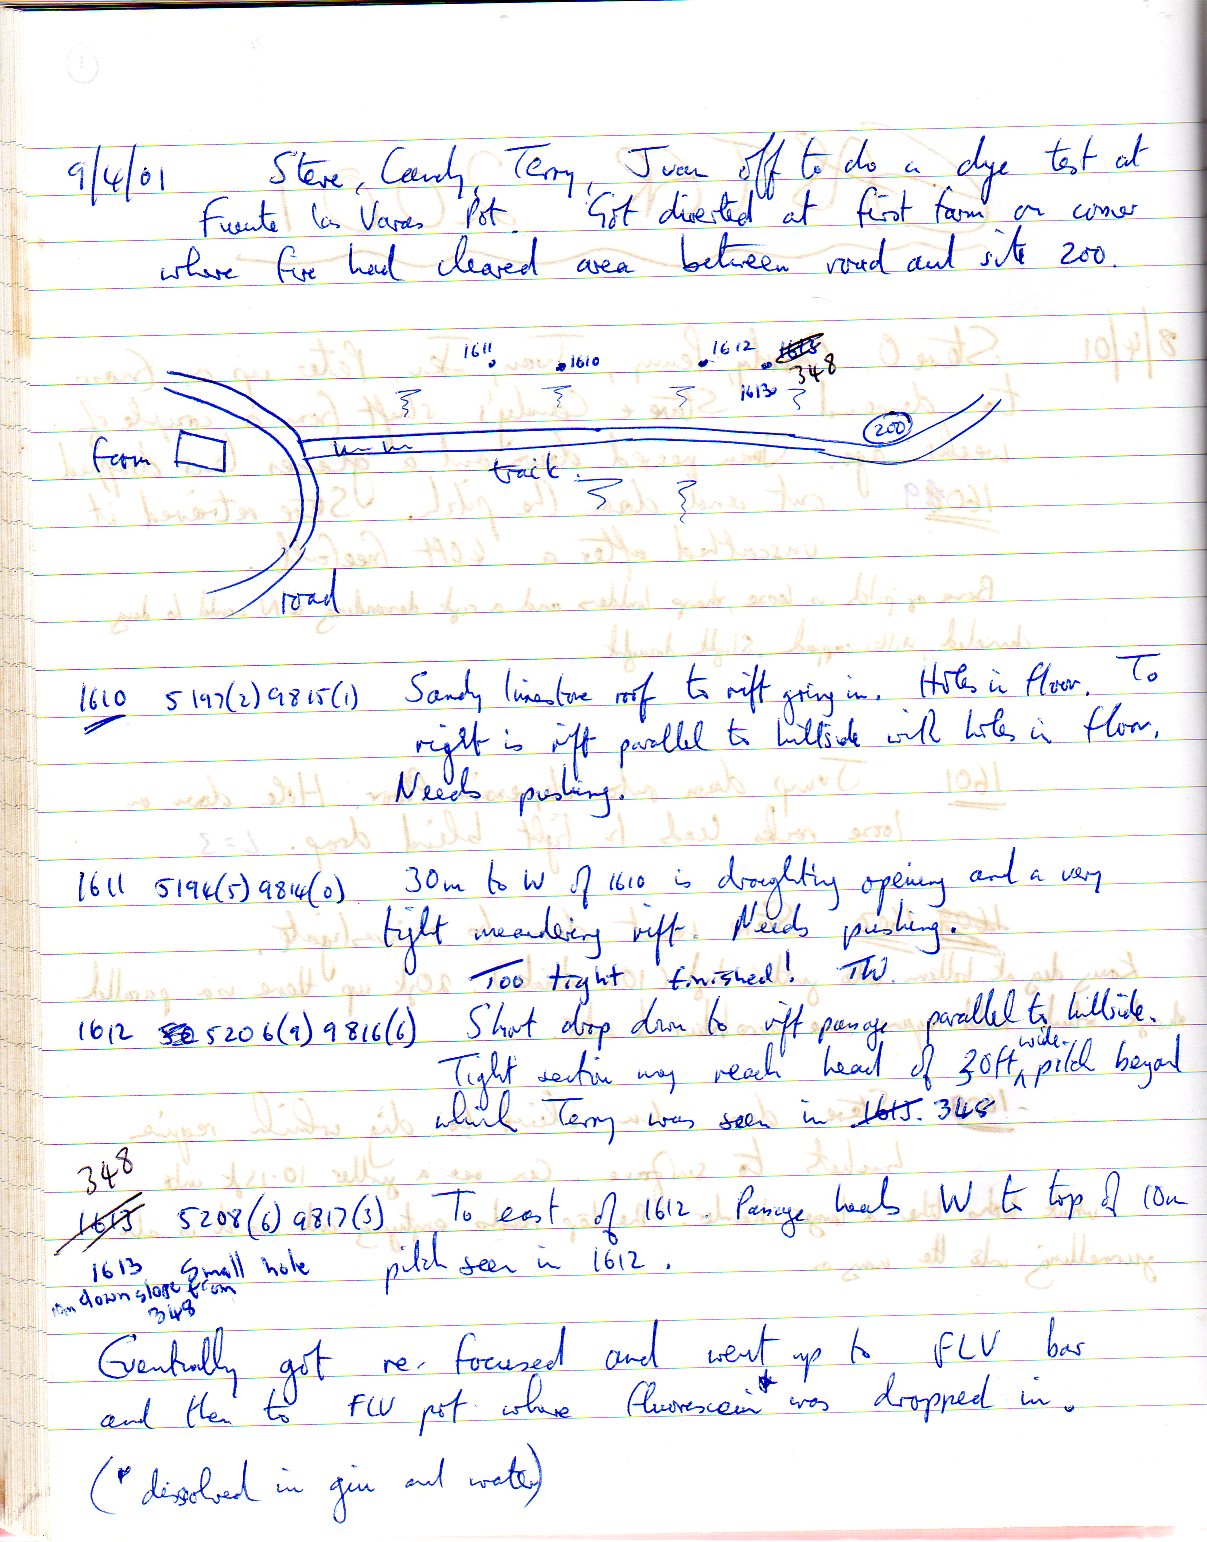 9/4/01 Steve, Candy, Terry, Juan off to do a dye test at
Fuente las Varas Pot. Got diverted at first farm on corner
where fire had cleared area between road and site 200.
1611 1610 1612 1613
348
1613
farm 200
track
road
1610 5197(2)9815(1) Sandy limestone roof to rift going in. Holes in floor. To
right is rift parallel to hillside with holes in floor.
Needs pushing.
1611 5194(5)9814(0) 30m to W of 1610 is draughting opening and a very
tight meandering rift. Needs pushing.
Too tight finished! TW.
1612 5206(9)9816(6) Short drop down to rift passage parallel to hillside.
Tight section may reach head of 30ft wide pitch beyond
which Terry was seen in 1613. 348
348
1613 5208(6)9817(3) To east of 1612. Passage heads W to top of 10m
1613 Small hole pitch seen in 1612.
down slope from
348
Eventually got re-focused and went up to FLV bar
and then to FLV pot where fluorescein* was dropped in.
(* dissolved in gin and water)